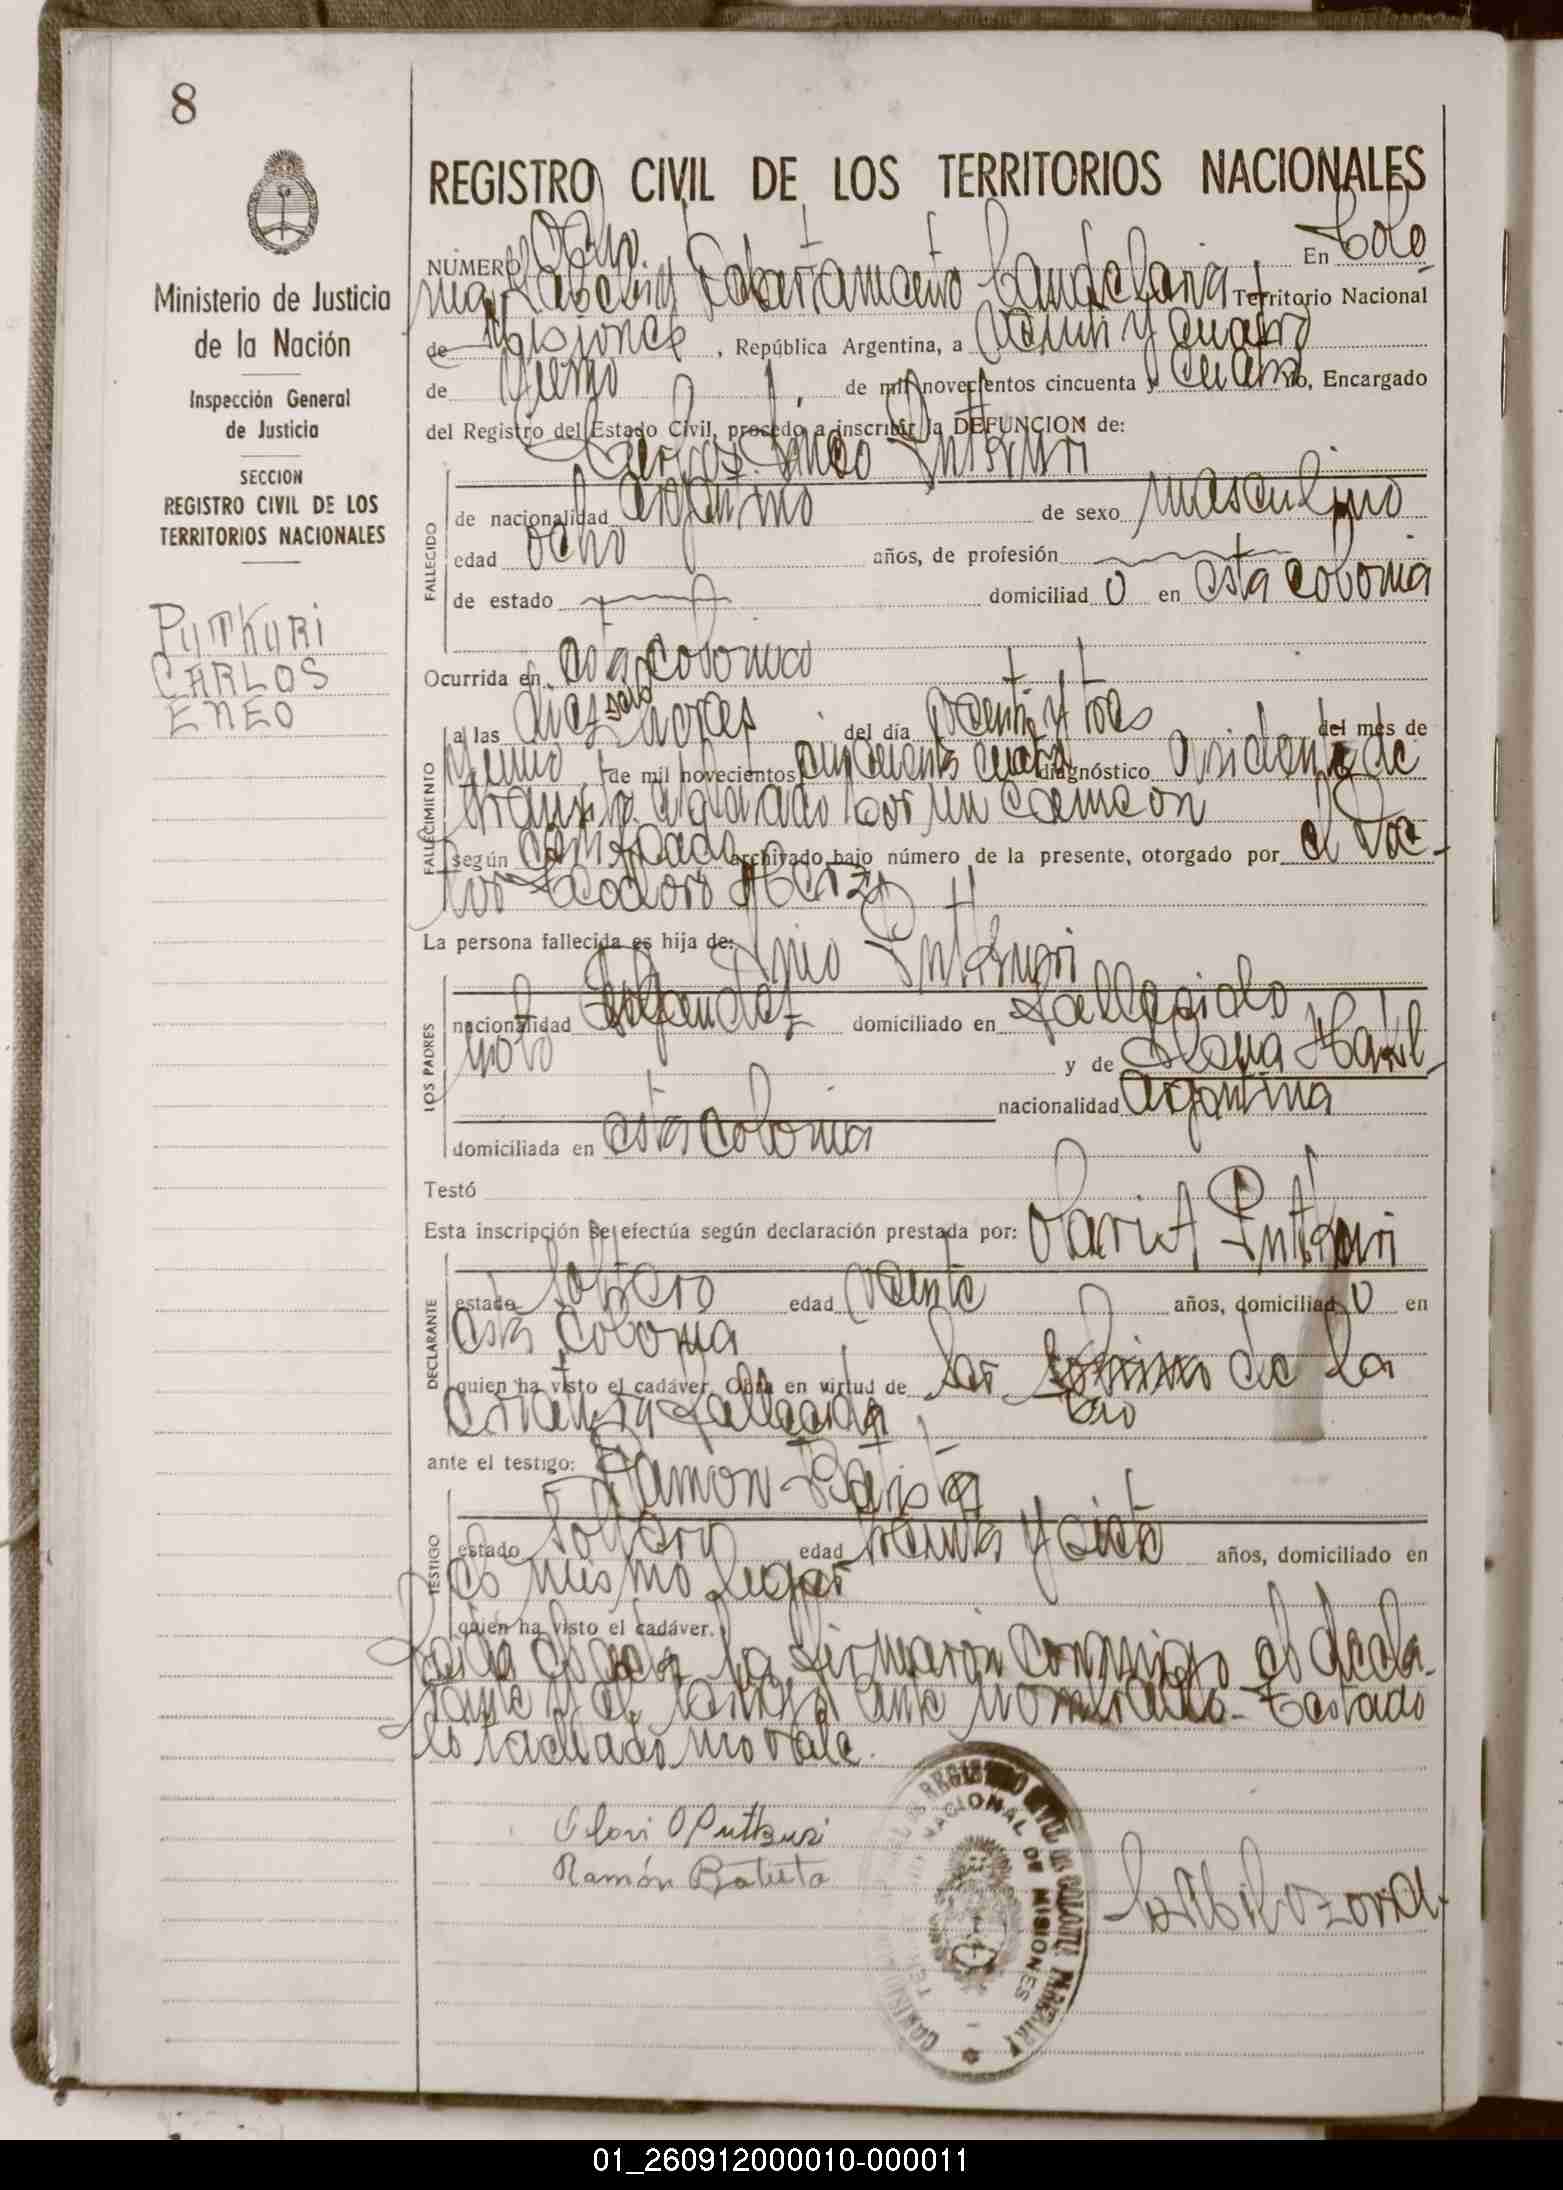 8
REGISTRO CIVIL DE LOS TERRITORIOS NACIONALES
Ministerio de Justicia
de la Nación
Inspección General
de Justicia
SECCION
REGISTRO CIVIL DE LOS
TERRITORIOS NACIONALES
PUTKURI
CARLOS
ENEO
NUMERO Ocho En Colo
nia Departamento Candelaria Territorio Nacional
de Misiones, República Argentina, a veinti y cuatro
de de mil novecientos cincuenta y cuatro Yo, Encargado
del Registro del Estado Civil, procedo a inscribir la DEFUNCION de:
Carlos Eneo Putkuri
FALLECIDO
de nacionalidad argentino de sexo masculino
edad ocho años, de profesión
de estado domiciliad o en esta colonia
Ocurrida en esta colonia
FALLECIMIENTO
a las diez seis horas del día veinti y tres del mes de
de mil novecientos cincuenta cuatro diagnóstico acidente de
transito por un camion
según certificado archivado bajo número de la presente, otorgado por el Doc-
tor Teodoro
La persona fallecida es hija de: Putkuri
LOS PADRES
nacionalidad domiciliado en fallesido
y de Elena
nacionalidad argentina
domiciliada en esta colonia
Testó
Esta inscripción se efectúa según declaración prestada por: Putkuri
DECLARANTE
estado soltero edad veinte años, domiciliad o en
esta colonia
quien ha visto el cadáver. Obra en virtud de ser de la
tio
criatura fallecida
ante el testigo: Ramon Batista
TESTIGO
estado soltero edad treinta y siete años, domiciliado en
el mismo lugar
quien ha visto el cadáver.
Leida el acta la firmaron conmigo el decla-
rante y el testigo ante nombrado - Testado
lo tachado no vale.
Olavi O Putkuri
Ramón Batista
REGISTRO CIVIL
NACIONAL DE MISIONES
01_260912000010-000011